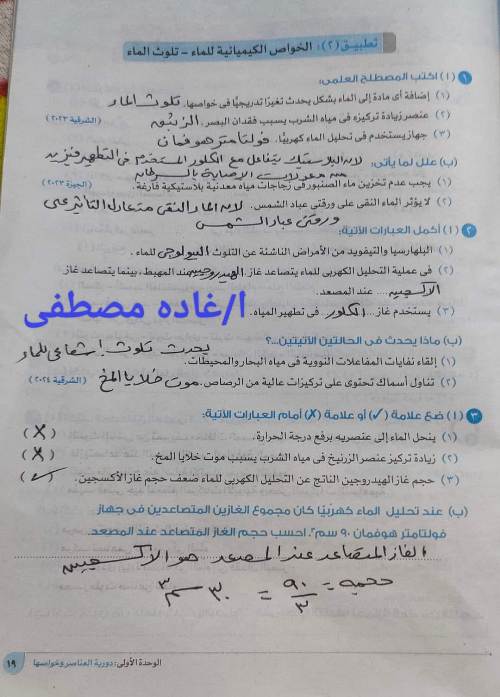 تطبيق (٢): الخواص الكيميائية للماء - تلوث الماء
١ (أ) اكتب المصطلح العلمى:
(١) إضافة أى مادة إلى الماء بشكل يحدث تغيرًا تدريجيًّا فى خواصها. تلوث الماء
(٢) عنصر زيادة تركيزه فى مياه الشرب يسبب فقدان البصر. الزئبق (الشرقية ٢٠٢٣)
(٣) جهاز يستخدم فى تحليل الماء كهربيًا. فولتامتر هوفمان
(ب) علل لما يأتى: لانه البلاستيك يتفاعل مع الكلور المستخدم فى التطهير فتزيد
من معدلات الاصابة بالسرطان
(١) يجب عدم تخزين ماء الصنبور فى زجاجات مياه معدنية بلاستيكية فارغة. (الجيزة ٢٠٢٣)
(٢) لا يؤثر الماء النقى على ورقتى عباد الشمس. لانه الماء النقى متعادل التأثير على
ورقتى عباد الشمس
٢ (أ) أكمل العبارات الآتية:
(١) البلهارسيا والتيفويد من الأمراض الناشئة عن التلوث البيولوجى للماء.
(٢) فى عملية التحليل الكهربى للماء يتصاعد غاز الهيدروجين عند المهبط، بينما يتصاعد غاز
الأكسجين .... عند المصعد.
(٣) يستخدم غاز... الكلور فى تطهير المياه.
ا/غاده مصطفى
(ب) ماذا يحدث فى الحالتين الآتيتين...؟
يحدث تلوث إشعاعى للماء
(١) إلقاء نفايات المفاعلات النووية فى مياه البحار والمحيطات.
(٢) تناول أسماك تحتوى على تركيزات عالية من الرصاص. موت خلايا المخ (الشرقية ٢٠٢٤)
٣ (أ) ضع علامة (✓) أو علامة (✗) أمام العبارات الآتية:
(١) ينحل الماء إلى عنصريه برفع درجة الحرارة. (✗)
(٢) زيادة تركيز عنصر الزرنيخ فى مياه الشرب يسبب موت خلايا المخ. (✗)
(٣) حجم غاز الهيدروجين الناتج عن التحليل الكهربى للماء ضعف حجم غاز الأكسجين. (✓)
(ب) عند تحليل الماء كهربيًا كان مجموع الغازين المتصاعدين فى جهاز
فولتامتر هوفمان ٩٠ سم٣. احسب حجم الغاز المتصاعد عند المصعد.
الغاز المتصاعد عند المصعد هو الأكسجين
حجمه = ٩٠/٣ = ٣٠ سم٣
الوحدة الأولى: دورية العناصر وخواصها ١٩